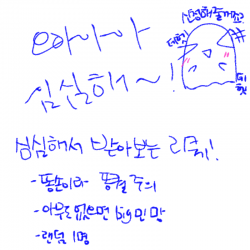 으아아아
심심해~!
신청해줄꺼죠?
데헷
데헷
심심해서 받아보는 리퀘!
-똥손이라 똥퀄 주의
-아무도 없으면 big민망
-랜덤 1명